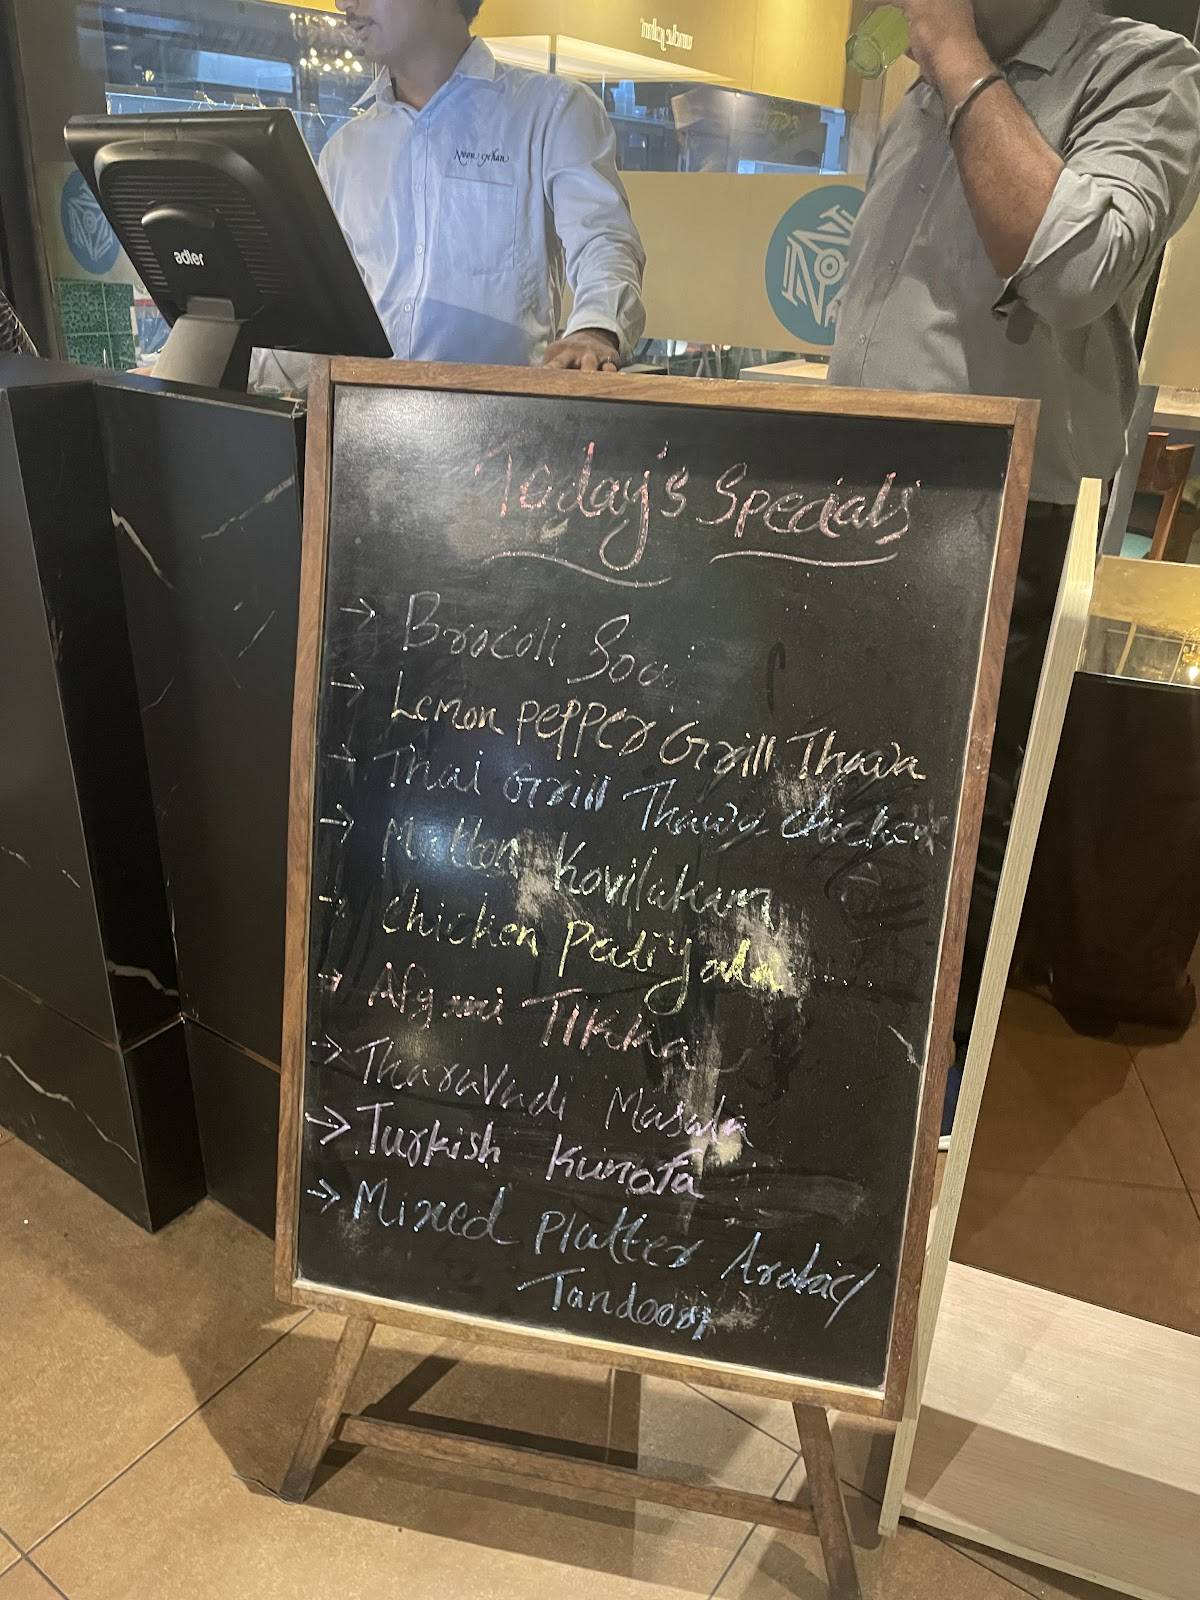 uncle john
Noor Jehan
adler
Today's Specials
→ Brocoli Soai
→ Lemon pepper Grill Thava
→ Thai Grill Thawa chicken
→ Mutton Kovilakam
→ chicken Patiyala
→ Afgani Tikka
→ Tharavadi Masala
→ Turkish Kunafa
→ Mixed platter Arabic/
Tandoori